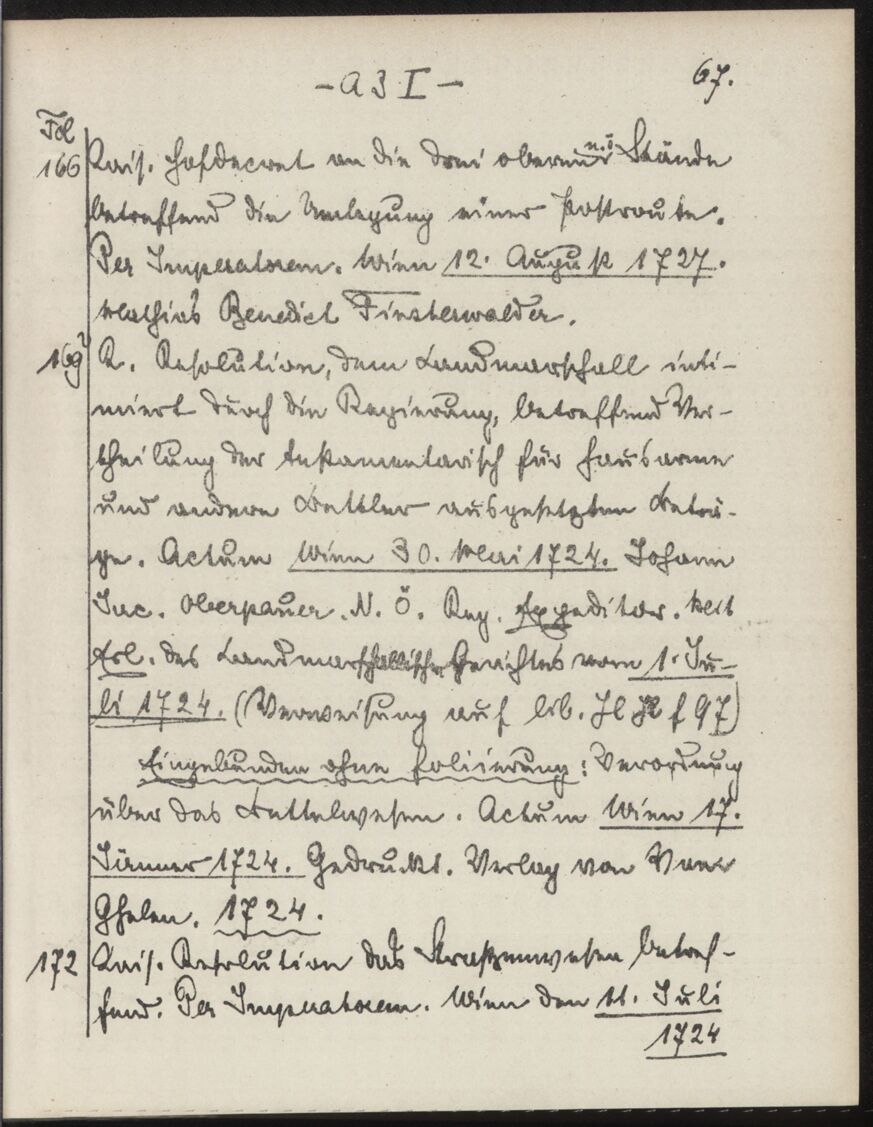 - A 3 I -
67.
Fol
166 Kais. Hofdecret an die drei oberen n.ö. Stände
betreffend die Umlegung einer Postroute.
Per Imperatorem. Wien 12. August 1727.
Mathias Benedict Finsterwalder.
169 K. Resolution, dem Landmarschall inti-
miert durch die Regierung, betreffend Ver-
theilung der testamentarisch für Hausarme
und andere Bettler ausgesetzten Beträ-
ge. Actum Wien 30. Mai 1724. Johann
Jac. Oberpauer. N. Ö. Reg. Expeditor. Mit
Erl. des Landmarschallischen Gerichtes vom 1. Ju-
li 1724. (Verweisung auf lib. f 97)
Eingebunden ohne Foliierung: Verordnung
über das Bettelwesen. Actum Wien 17.
Jänner 1724. Gedruckt. Verlag von Van
Ghelen. 1724.
172 Kais. Resolution das Straßenwesen betref-
fend. Per Imperatorem. Wien den 11. Juli
1724